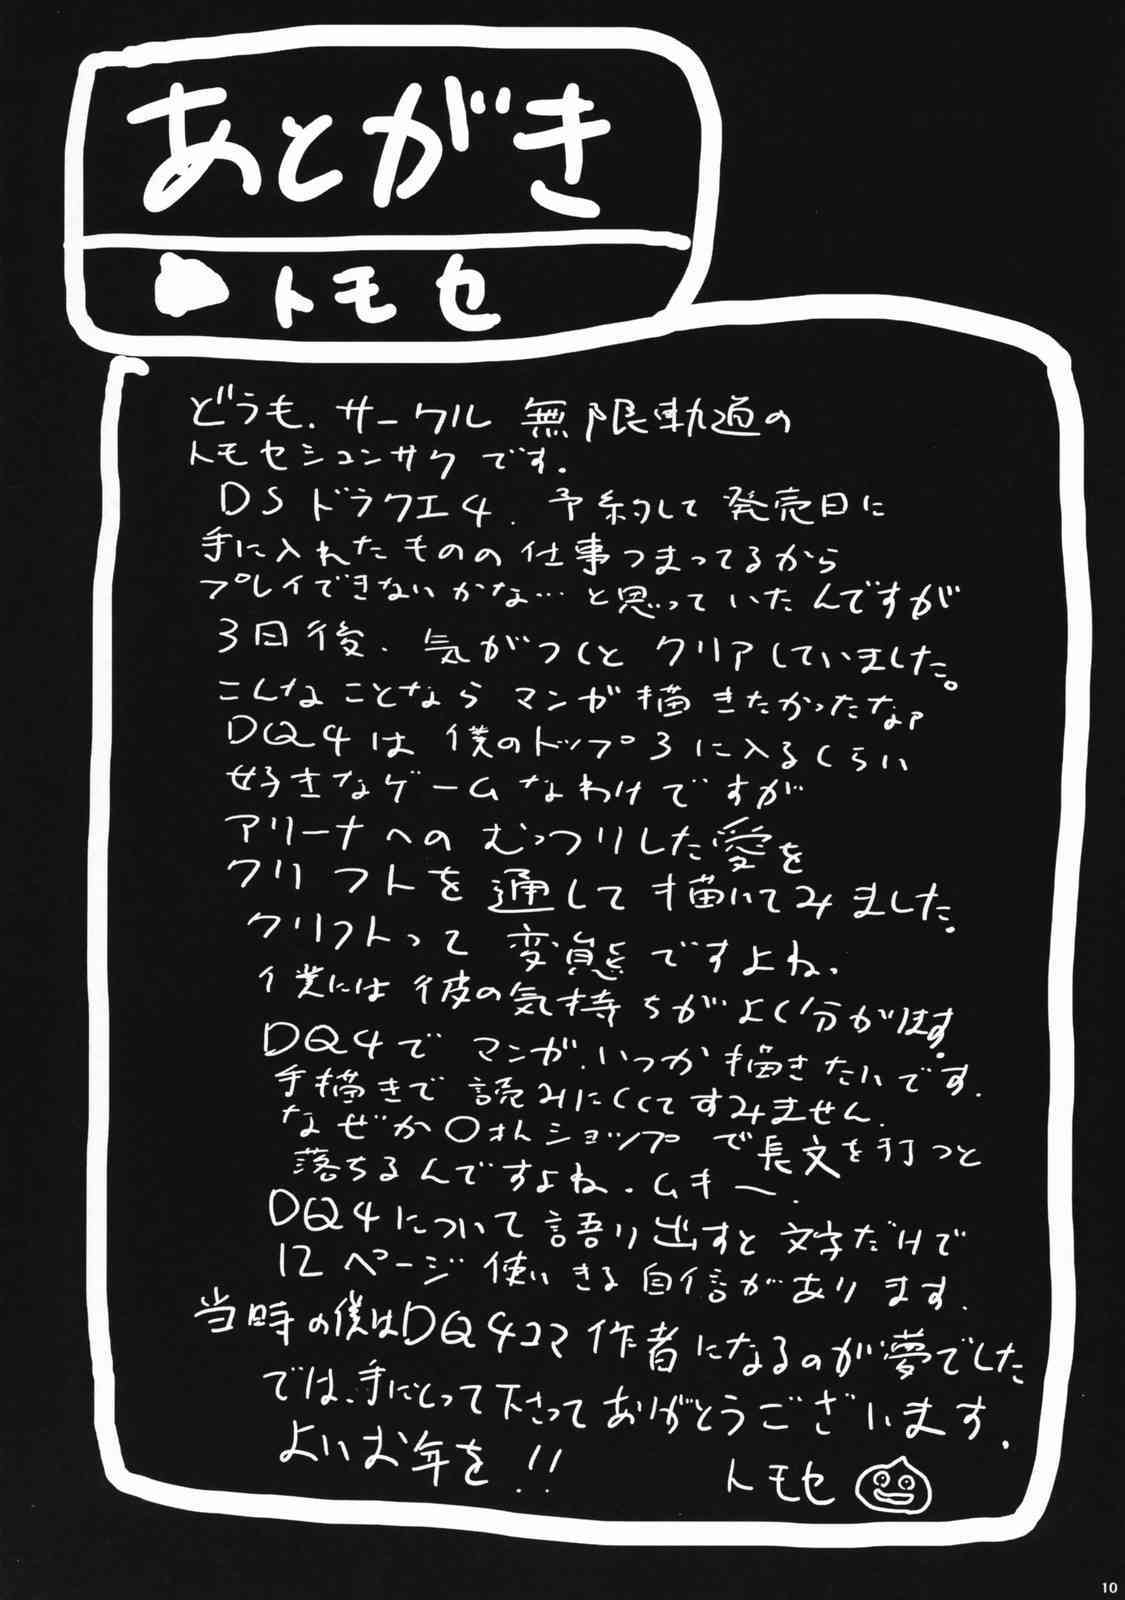 あとがき
トモセ
どうも、サークル 無限軌道の
トモセシュンサクです。
DSドラクエ4、予約して発売日に
手に入れたものの仕事つまってるから
プレイできないかな…と思っていたんですが
3日後、気がつくとクリアしていました。
こんなことならマンガ描きたかったなァ
DQ4は僕のトップ3に入るくらい
好きなゲームなわけですが
アリーナへのむっつりした愛を
クリフトを通して描いてみました。
クリフトって変態ですよね、
僕には彼の気持ちがよく分かります。
DQ4でマンガ、いつか描きたいです。
手描きで読みにくくてすみません。
なぜか〇ォトショップで長文を打つと
落ちるんですよね。ムキー、
DQ4について語り出すと文字だけで
12ページ使いきる自信があります。
当時の僕はDQ4コマ作者になるのが夢でした
では、手にとって下さってありがとうございます。
よいお年を!!
トモセ
10